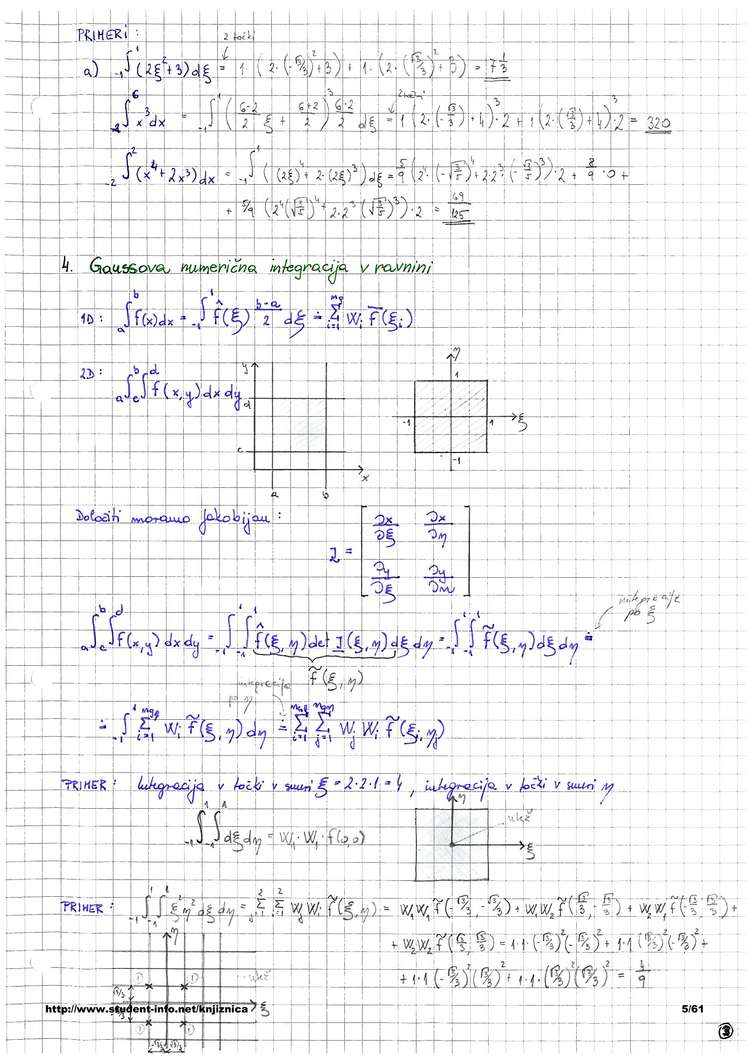 PRIMERI:
2 točki
a) -1∫1 (2ξ²+3) dξ = 1·(2·(-√3/3)²+3) + 1·(2·(√3/3)²+3) = 7 1/3
2∫6 x³dx = -1∫1 ((6-2)/2 ξ + (6+2)/2)³ (6-2)/2 dξ = 1(2·(-√3/3)+4)³·2 + 1(2·(√3/3)+4)³·2 = 320
-2∫2 (x⁴+2x³)dx = -1∫1 ((2ξ)⁴ + 2·(2ξ)³) dξ = 5/9 (2⁴(-√3/5)⁴+2·2³(-√3/5)³)·2 + 8/9·0 +
+ 5/9 (2⁴(√3/5)⁴+ 2·2³(√3/5)³)·2 = 69/125
4. Gaussova numerična integracija v ravnini
1D: a∫b f(x)dx = -1∫1 f̂(ξ) (b-a)/2 dξ ≐ Σ Wi f̄(ξi)
2D: a∫b c∫d f(x,y) dx dy
y d c a b x
η 1 -1 1 ξ -1
Določiti moramo Jakobijan:
J = [∂x/∂ξ ∂x/∂η
∂y/∂ξ ∂y/∂η]
integracija po ξ
a∫b c∫d f(x,y) dx dy = -1∫1 -1∫1 f̂(ξ,η) det J(ξ,η) dξ dη = -1∫1 -1∫1 f̃(ξ,η) dξ dη ≐
f̃(ξ,η)
integracija po η
≐ -1∫1 Σ Wi f̃(ξi,η) dη ≐ Σ Σ Wj Wi f̃(ξi,ηj)
PRIMER: Integracija v točki v smeri ξ = 2·2·1 = 4, integracija v točki v smeri η
-1∫1 -1∫1 dξdη = W1·W1·f(0,0)
η ukč ξ
PRIMER: -1∫1 -1∫1 ξ²η² dξ dη = Σ Σ Wj Wi f̃(ξi,η) = W1W1 f̃(-√3/3,-√3/3) + W1W2 f̃(√3/3,-√3/3) + W2W1 f̃(√3/3·√3/3) +
+ W2W2 f̃(√3/3,√3/3) = 1·1·(-√3/3)²(-√3/3)² + 1·1(√3/3)²(-√3/3)² +
+ 1·1(-√3/3)²(√3/3)² + 1·1·(√3/3)²(√3/3)² = 4/9
η ukč ξ
√3/3
http://www.student-info.net/knjiznica
5/61
3